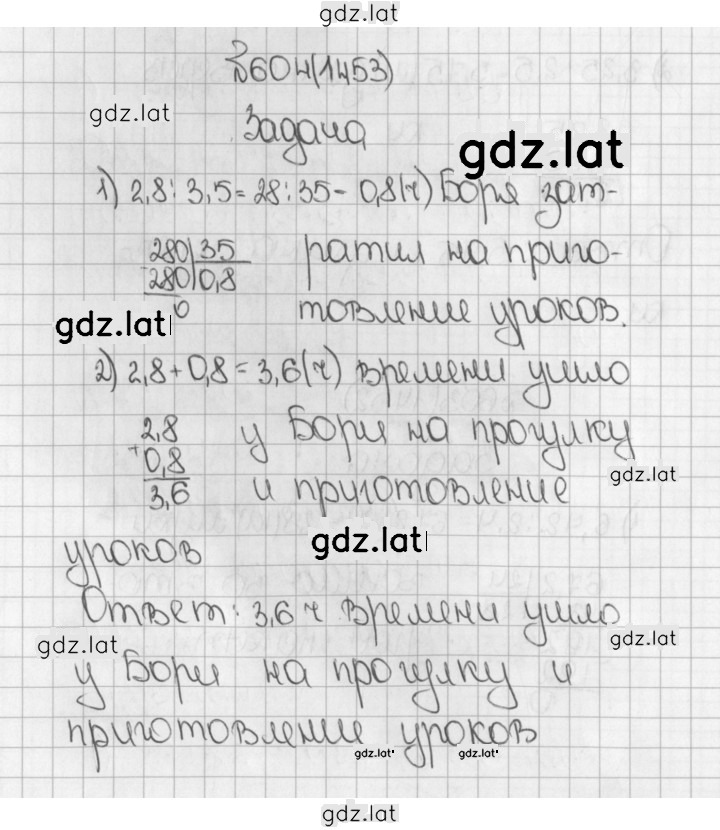 gdz.lat
№604(1453)
gdz.lat
Задача
gdz.lat
1) 2,8 : 3,5 = 28 : 35 - 0,8(ч) Боря зат-
280 35 ратил на приго-
-280 0,8
0 товление уроков.
gdz.lat
2) 2,8 + 0,8 = 3,6 (ч) времени ушло
2,8 у Бори на прогулку
+0,8
gdz.lat
3,6 и приготовление
gdz.lat
уроков
Ответ: 3,6 ч времени ушло
gdz.lat
gdz.lat
у Бори на прогулку и
приготовление уроков
gdz.lat
gdz.lat
gdz.lat